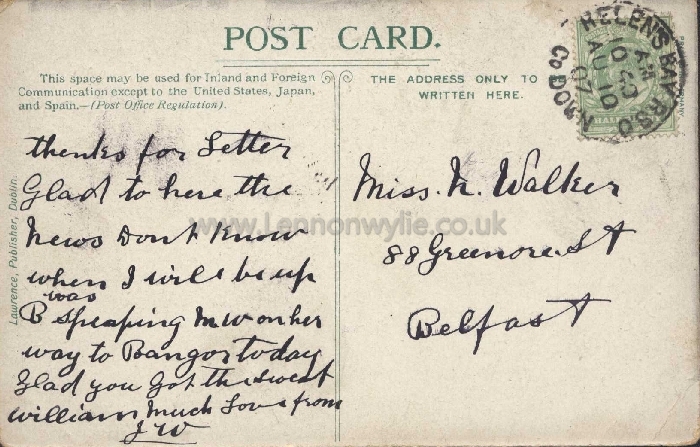 POST CARD.
This space may be used for Inland and Foreign
Communication except to the United States, Japan,
and Spain.—(Post Office Regulation).
THE ADDRESS ONLY TO
WRITTEN HERE.
HELEN'S BAY R.S.O
Co DOWN
10 40 AM
AU 10
07
HALF
Lawrence, Publisher, Dublin.
thenks for Letter
Glad to here the
News Dont Know
when I will be up
was
B speaping MW on her
way to Bangor today
Glad you got the sweat
William Much Love from
JW
Miss. N. Walker
88 Greenore St
Belfast
www.Lennonwylie.co.uk